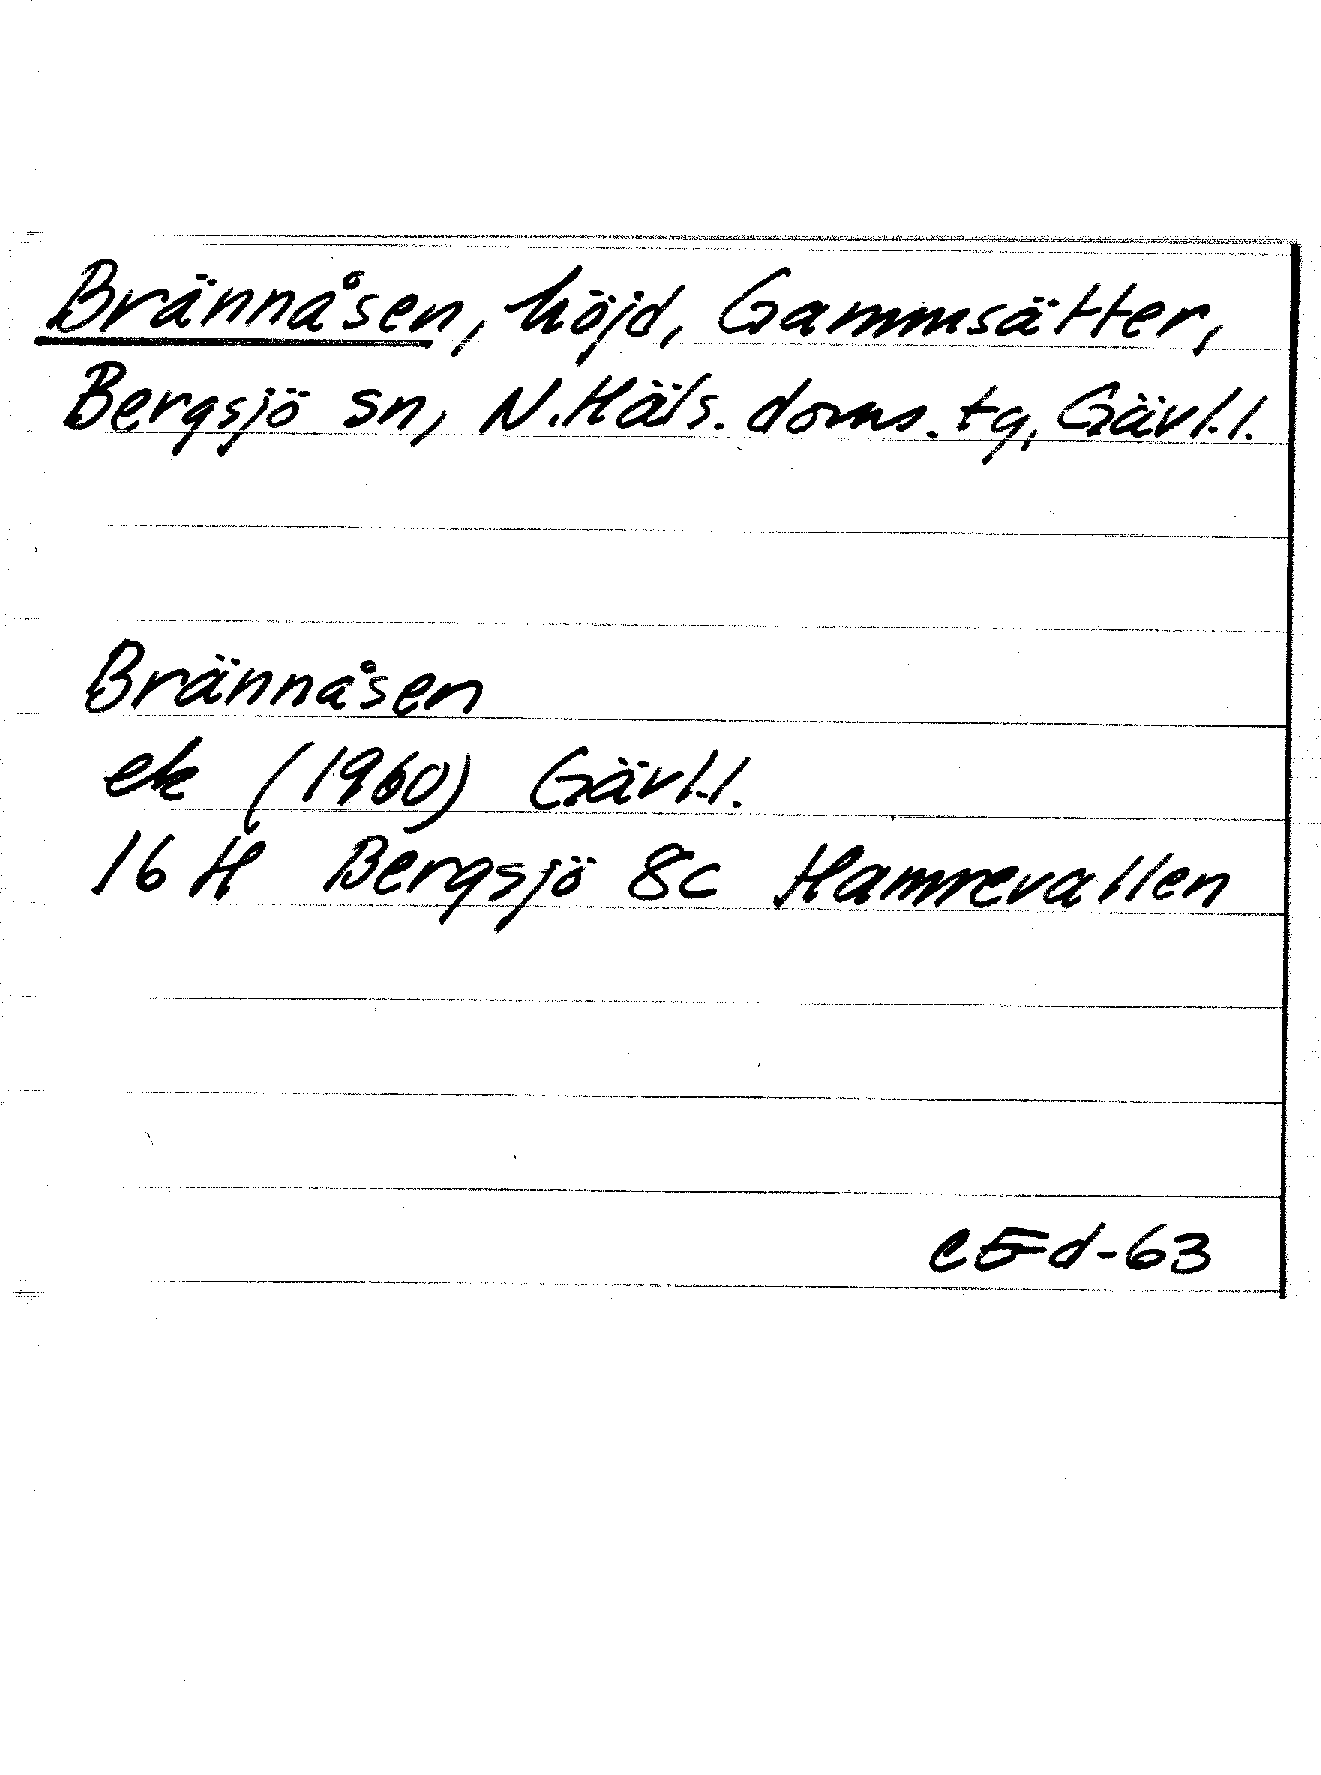 Brännåsen, höjd, Gammsätter,
Bergsjö sn, N.Häls. doms. tg, Gävl.l.
Brännåsen
ek (1960) Gävl.l.
16 H Bergsjö 8c Hamrevallen
e5d-63